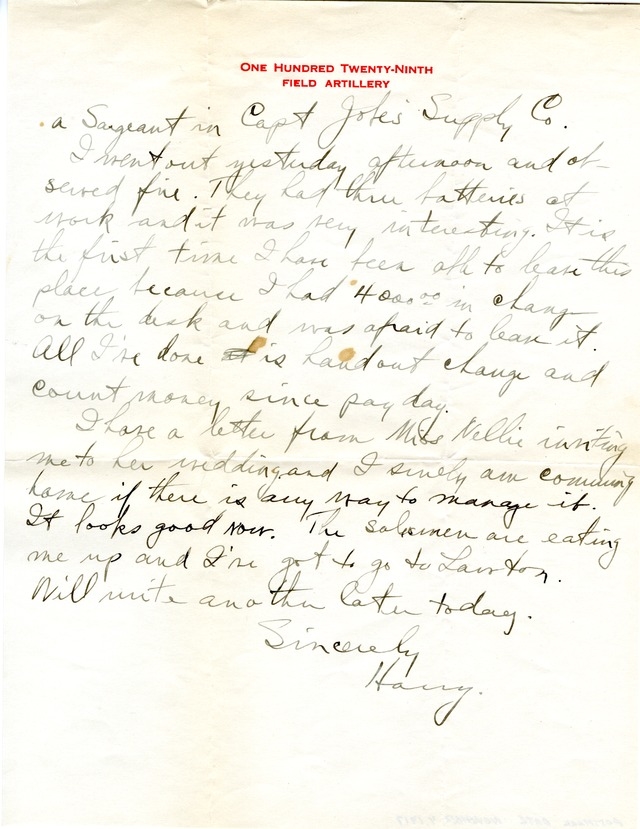 ONE HUNDRED TWENTY-NINTH
FIELD ARTILLERY
a Sargeant in Capt Jobe's Supply Co.
I went out yesterday afternoon and ob-
served fire. They had three batteries at
work and it was very interesting. It is
the first time I have been able to leave this
place because I had 4000.00 in change
on the desk and was afraid to leave it.
All I've done is hand out change and
count money since pay day.
I have a letter from Miss Nellie inviting
me to her wedding and I surely am comming
home if there is any way to manage it.
It looks good now. The salesmen are eating
me up and I've got to go to Lawton.
Will write another later today.
Sincerely
Harry.